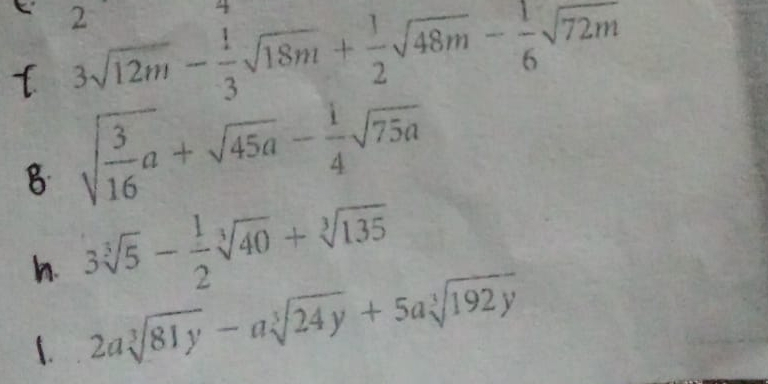 2 4
f. 3√12m − 1/3 √18m + 1/2 √48m − 1/6 √72m
g. √(3/16 a) + √45a − 1/4 √75a
h. 3∛5 − 1/2 ∛40 + ∛135
i. 2a∛81y − a∛24y + 5a∛192y